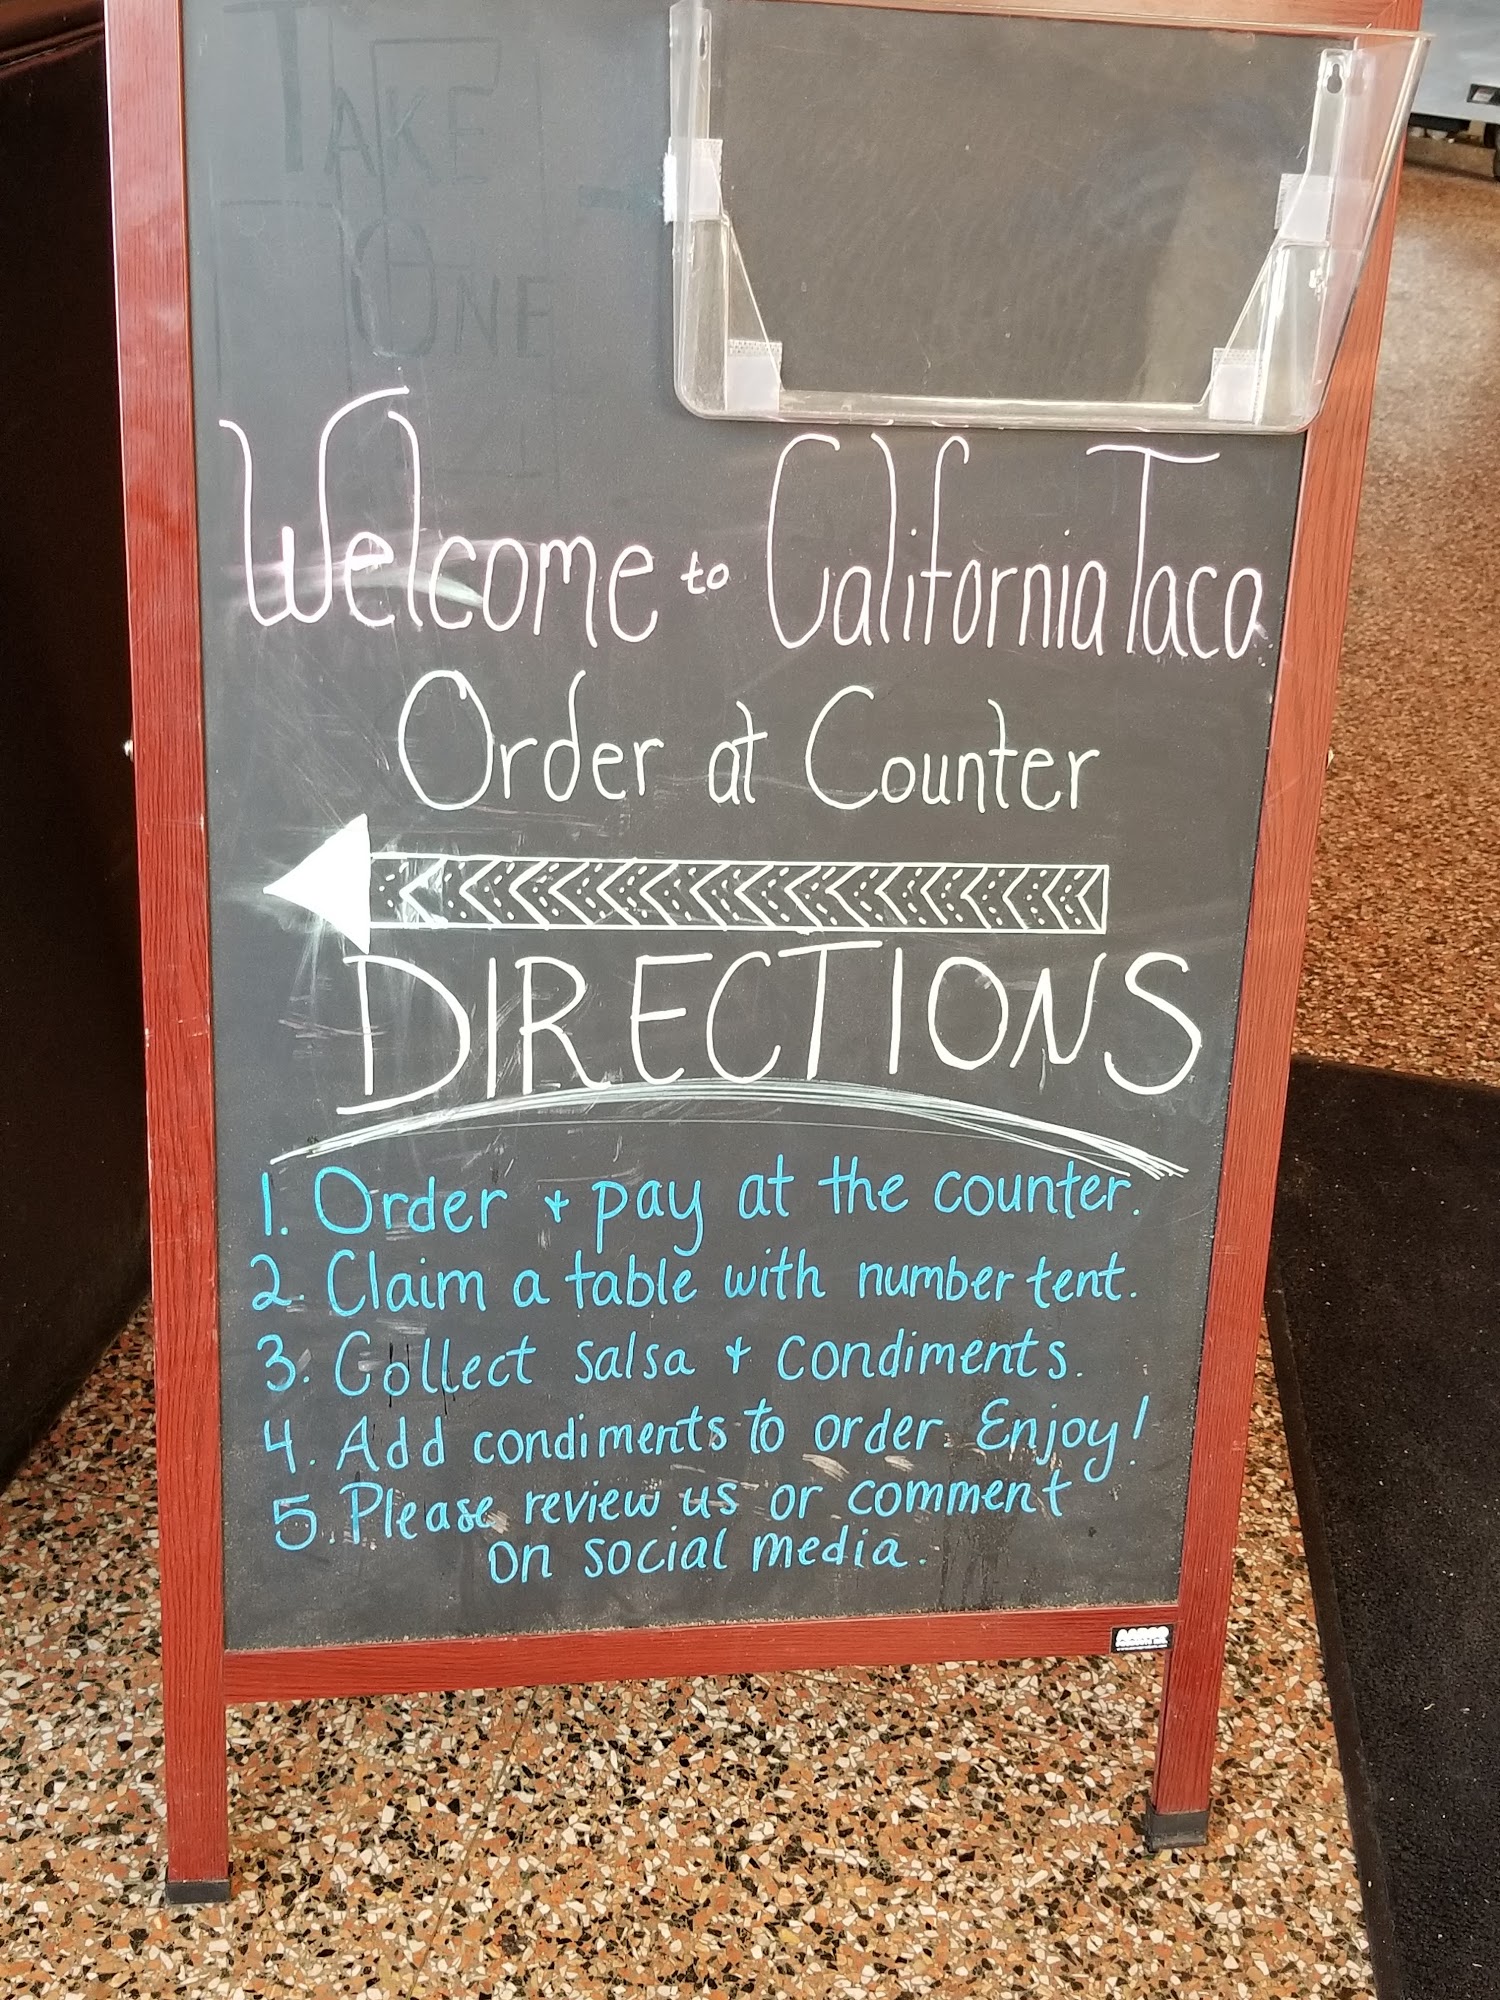 TAKE
ONE
Welcome to California Taco
Order at Counter
DIRECTIONS
1. Order + pay at the counter.
2. Claim a table with number tent.
3. Collect salsa + condiments.
4. Add condiments to order. Enjoy!
5. Please review us or comment
on social media.